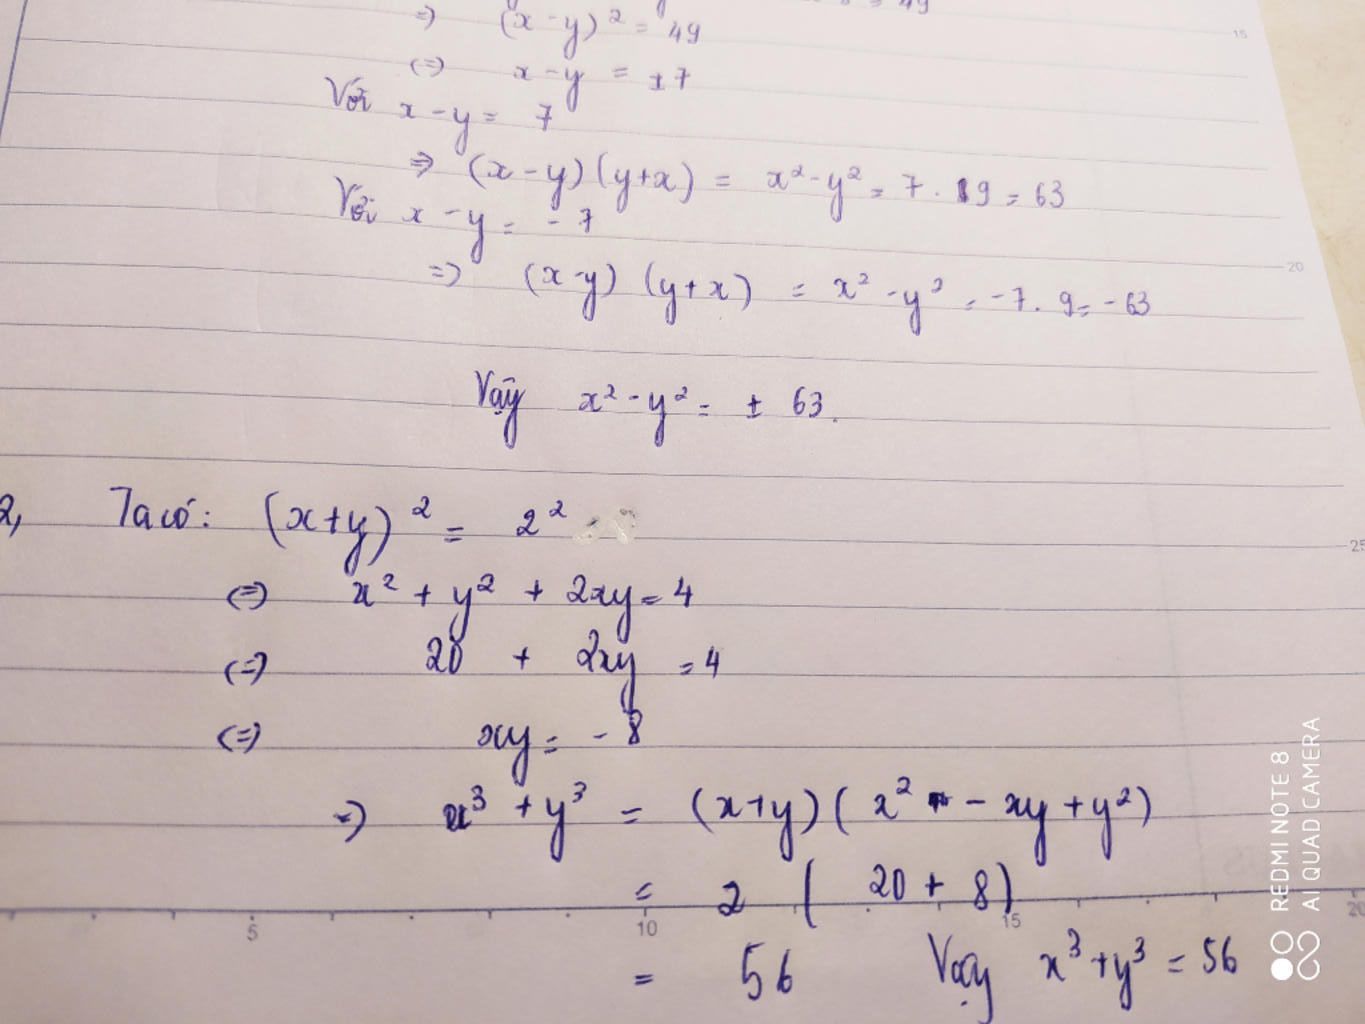 = 49
=> (x - y)² = 49
<=> x - y = ±7
Với x - y = 7
=> (x - y)(y + x) = x² - y² = 7 . 9 = 63
Với x - y = -7
=> (x - y) (y + x) = x² - y² = -7 . 9 = -63
Vậy x² - y² = ± 63.
2, Ta có: (x + y)² = 2²
<=> x² + y² + 2xy = 4
<=> 20 + 2xy = 4
<=> xy = -8
=> x³ + y³ = (x + y)(x² - xy + y²)
= 2 (20 + 8)
= 56 Vậy x³ + y³ = 56
15
20
25
5 10 15 20
REDMI NOTE 8
AI QUAD CAMERA